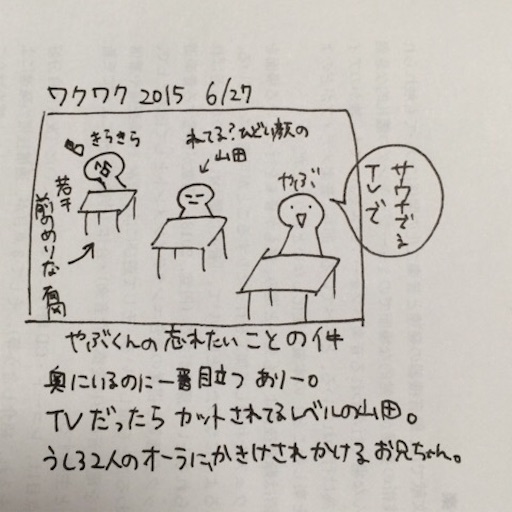 ワクワク 2015 6/27
きらきら
ねてる?ひどい顔の
山田
やぶ
サウナでる
TVで
若き
前のめりな 有岡
やぶくんの忘れたいことの件
奥にいるのに一番目立つ ありー。
TVだったらカットされてるレベルの山田。
うしろ2人のオーラに、かきけされかけるお兄ちゃん。